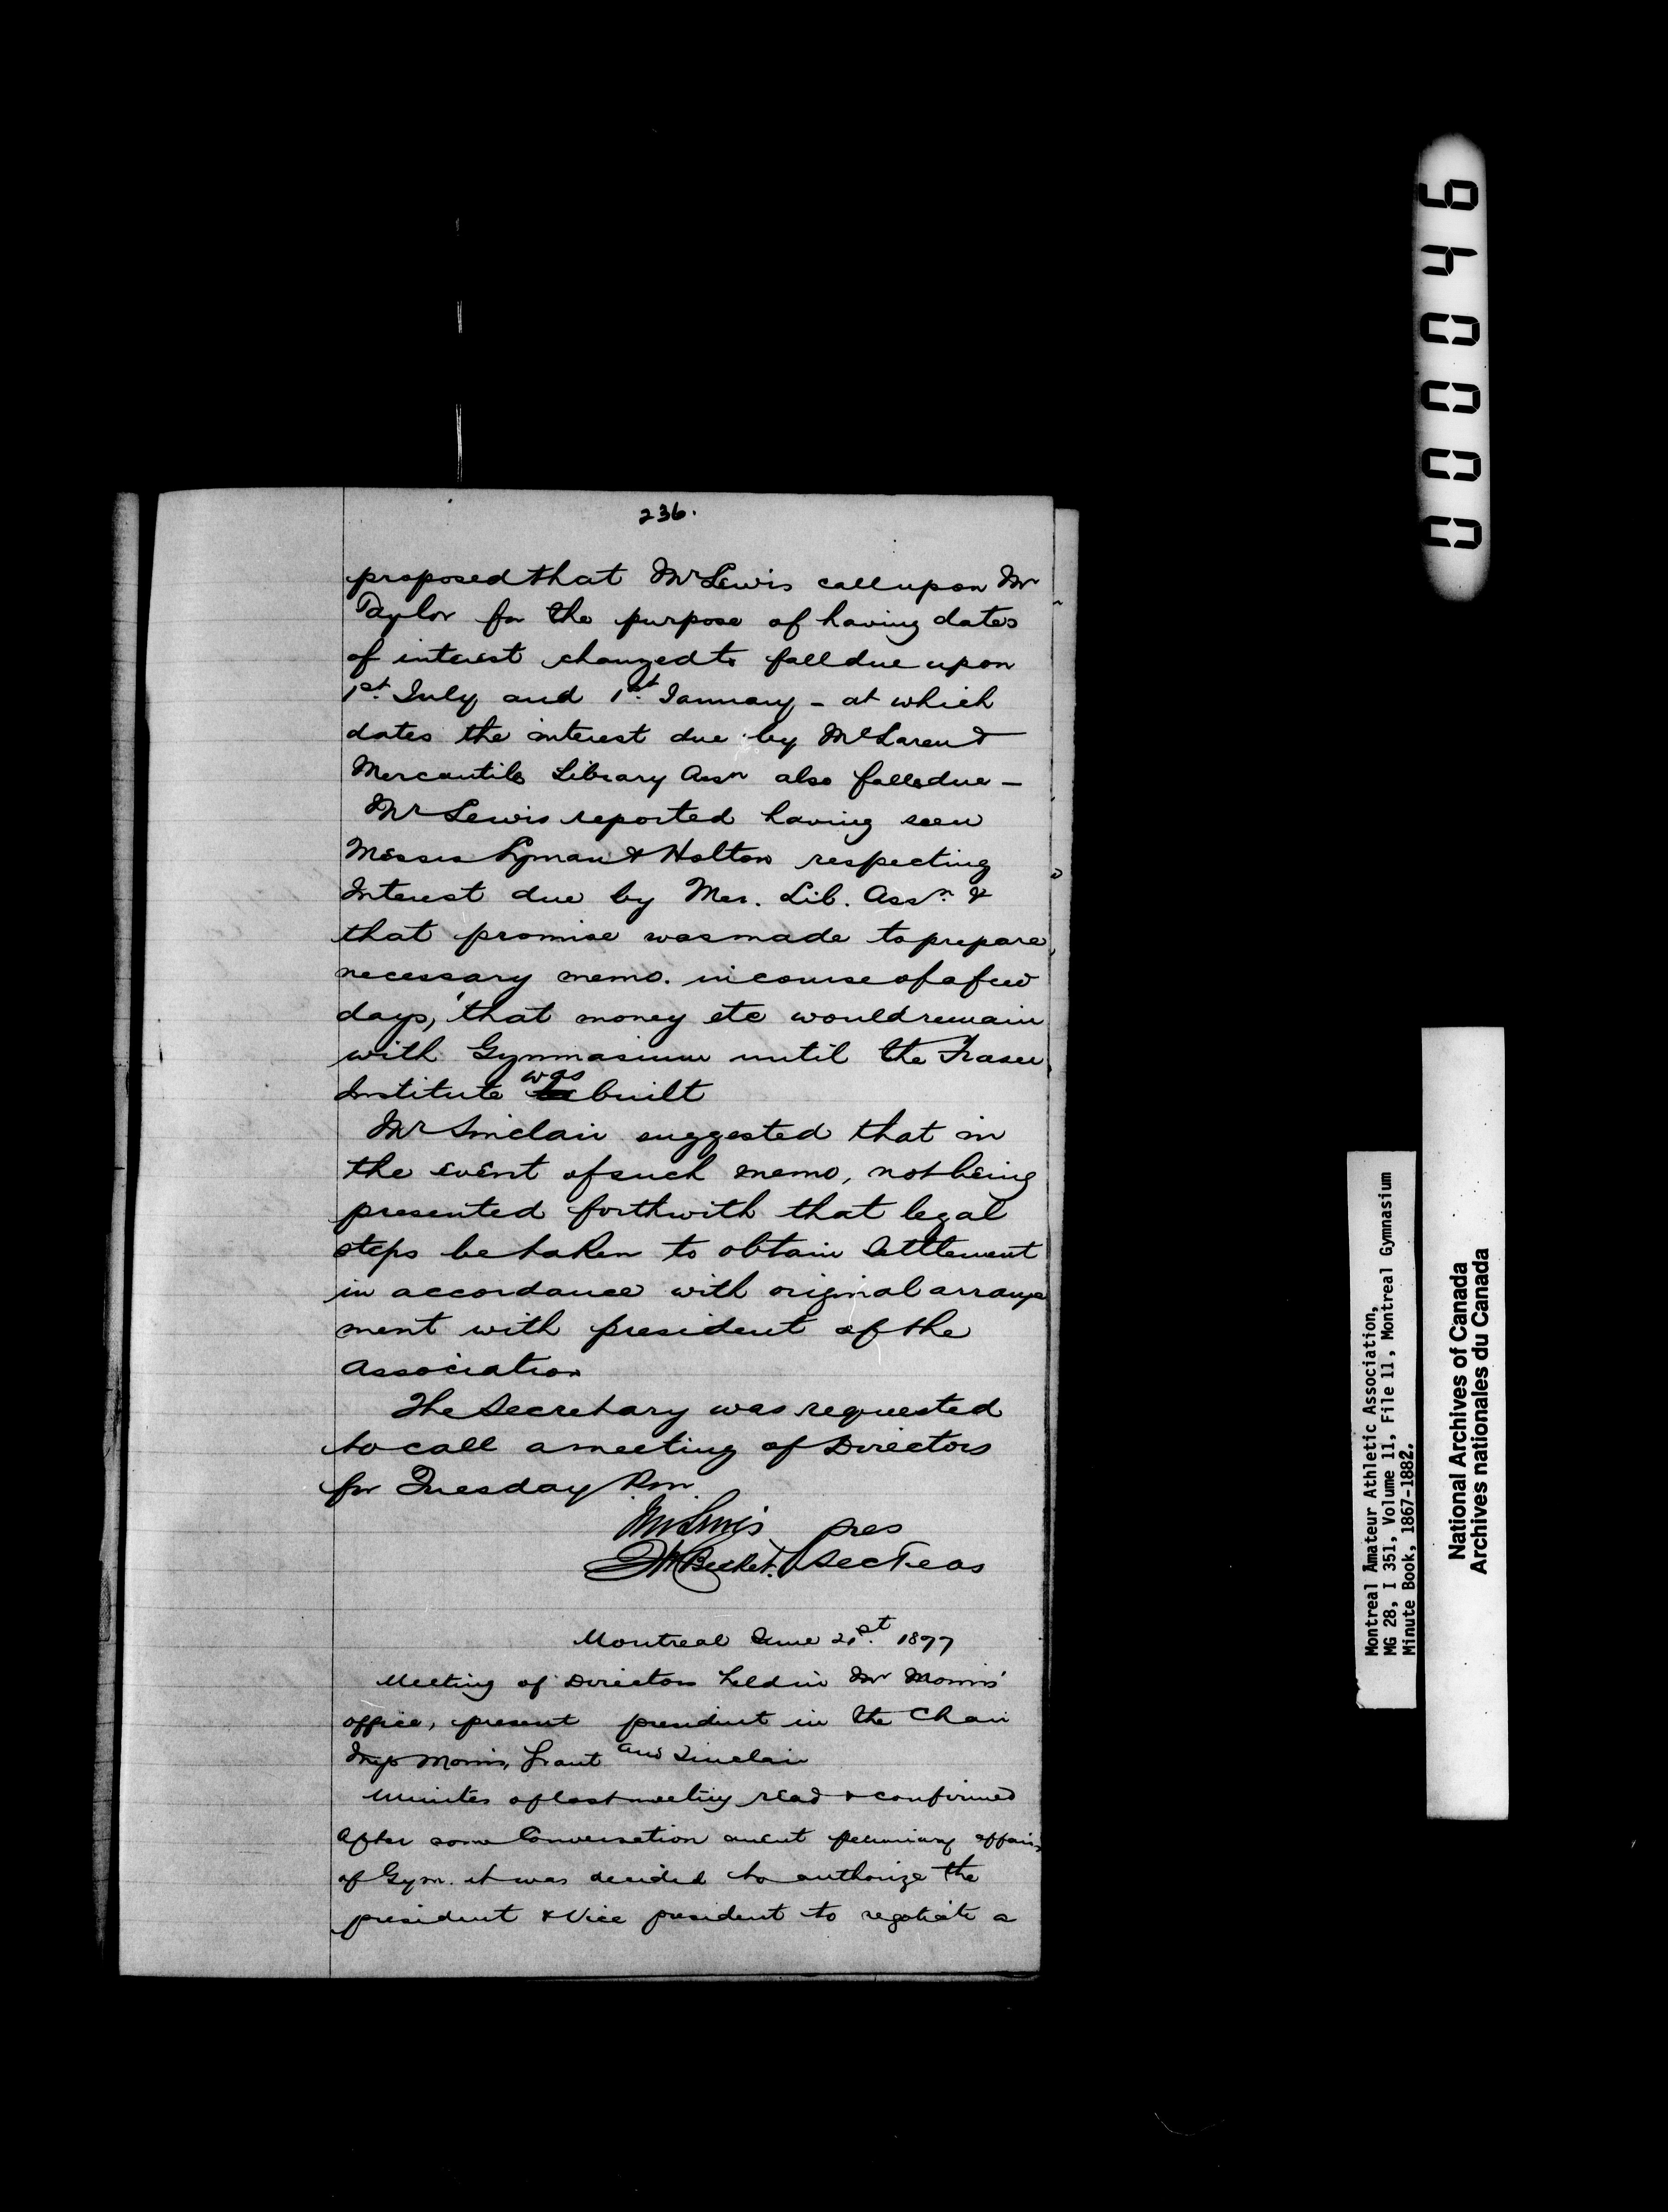 236.
proposed that Mr Lewis call upon Mr
Taylor for the purpose of having dates
of interest changed to fall due upon
1st. July and 1st. January - at which
dates the interest due by McLaren &
Mercantile Library Assn also falls due -
Mr Lewis reported having seen
Messrs Lyman & Holton respecting
Interest due by Mer. Lib. Assn. &
that promise was made to prepare
necessary memo. in course of a few
days, that money etc would remain
with Gymnasium until the Fraser
Institute was built
Mr Sinclair suggested that in
the event of such memo, not being
presented forthwith that legal
steps be taken to obtain Settlement
in accordance with original arrange
ment with president of the
Association
The Secretary was requested
to call a meeting of Directors
for Tuesday
Lewis pres
Becket. Sec Treas
Montreal June 21st. 1877
Meeting of Directors held in Mr Morris'
office, present president in the Chair
Morris, Grant and Sinclair
Minutes of last meeting read & confirmed
After some Conversation anent pecuniary affairs
of Gym. it was decided to authorize the
president & Vice president to negotiate a
000046
Montreal Amateur Athletic Association,
MG 28, I 351, Volume 11, File 11, Montreal Gymnasium
Minute Book, 1867-1882.
National Archives of Canada
Archives nationales du Canada